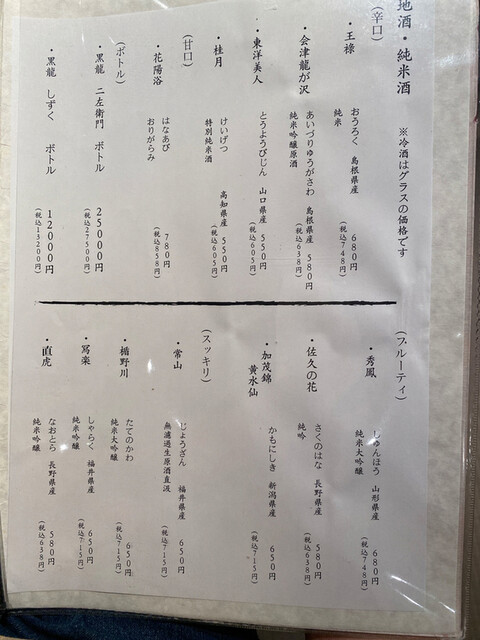 地酒・純米酒 ※冷酒はグラスの価格です
(辛口)
・王祿 おうろく 島根県産 680円
純米 (税込748円)
・会津龍が沢 あいづりゅうがさわ 島根県産 580円
純米吟醸原酒 (税込638円)
・東洋美人 とうようびじん 山口県産 550円
(税込605円)
・桂月 けいげつ 高知県産 550円
特別純米酒 (税込605円)
(甘口)
・花陽浴 はなあび 780円
おりがらみ (税込858円)
(ボトル)
・黒龍 二左衛門 ボトル 25000円
(税込27500円)
・黒龍 しずく ボトル 12000円
(税込13200円)
(フルーティ)
・秀鳳 しゅんほう 山形県産 680円
純米大吟醸 (税込748円)
・佐久の花 さくのはな 長野県産 580円
純吟 (税込638円)
・加茂錦 かもにしき 新潟県産 650円
黄水仙 (税込715円)
(スッキリ)
・常山 じょうざん 福井県産 650円
無濾過生原酒直汲 (税込715円)
・楯野川 たてのかわ 650円
純米大吟醸 (税込715円)
・冩楽 しゃらく 福井県産 650円
純米吟醸 (税込715円)
・直虎 なおとら 長野県産 580円
純米吟醸 (税込638円)